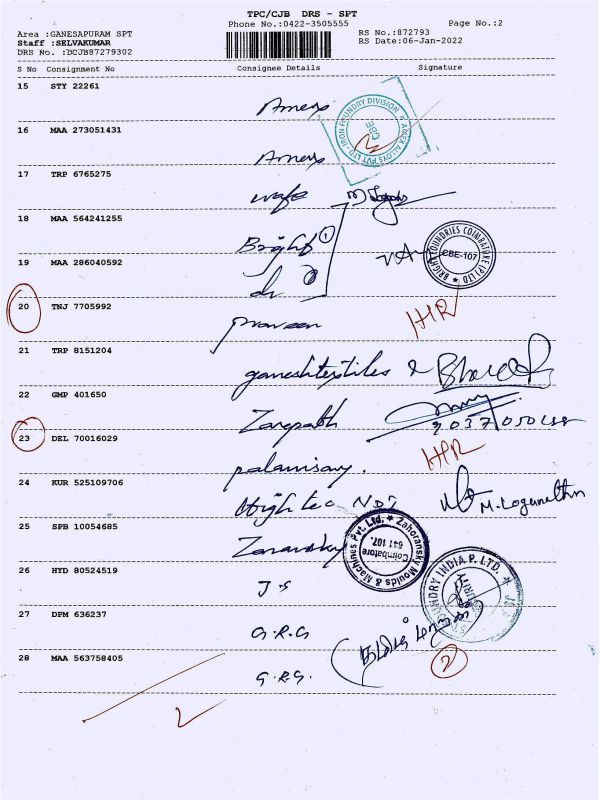 TPC/CJB DRS - SPT
Phone No.:0422-3505555
Page No.:2
Area :GANESAPURAM SPT
Staff :SELVAKUMAR
DRS No. :DCJB87279302
RS No.:872793
RS Date:06-Jan-2022
S No Consignment No Consignee Details Signature
15 STY 22261
Amexs
16 MAA 273051431
Amexs
IRON FOUNDRY DIVISION * AMEX ALLOYS PVT LTD
CBE
17 TRP 6765275
18 MAA 564241255
Bright 1
19 MAA 286040592
BRIGHT FOUNDRIES COIMBATORE (P) LTD
CBE-107
20 TNJ 7705992
praveen
21 TRP 8151204
ganeshtextiles
22 GMP 401650
23 DEL 70016029
palanisamy.
24 KUR 525109706
Hightec
M. Loganathn
25 SPB 10054685
Zahoransky Moulds & Machines Pvt. Ltd. *
Coimbatore
641 107.
26 HYD 80524519
J.S
FOUNDRY INDIA P. LTD.
27 DPM 636237
G.R.G
28 MAA 563758405
G.R.G.
2